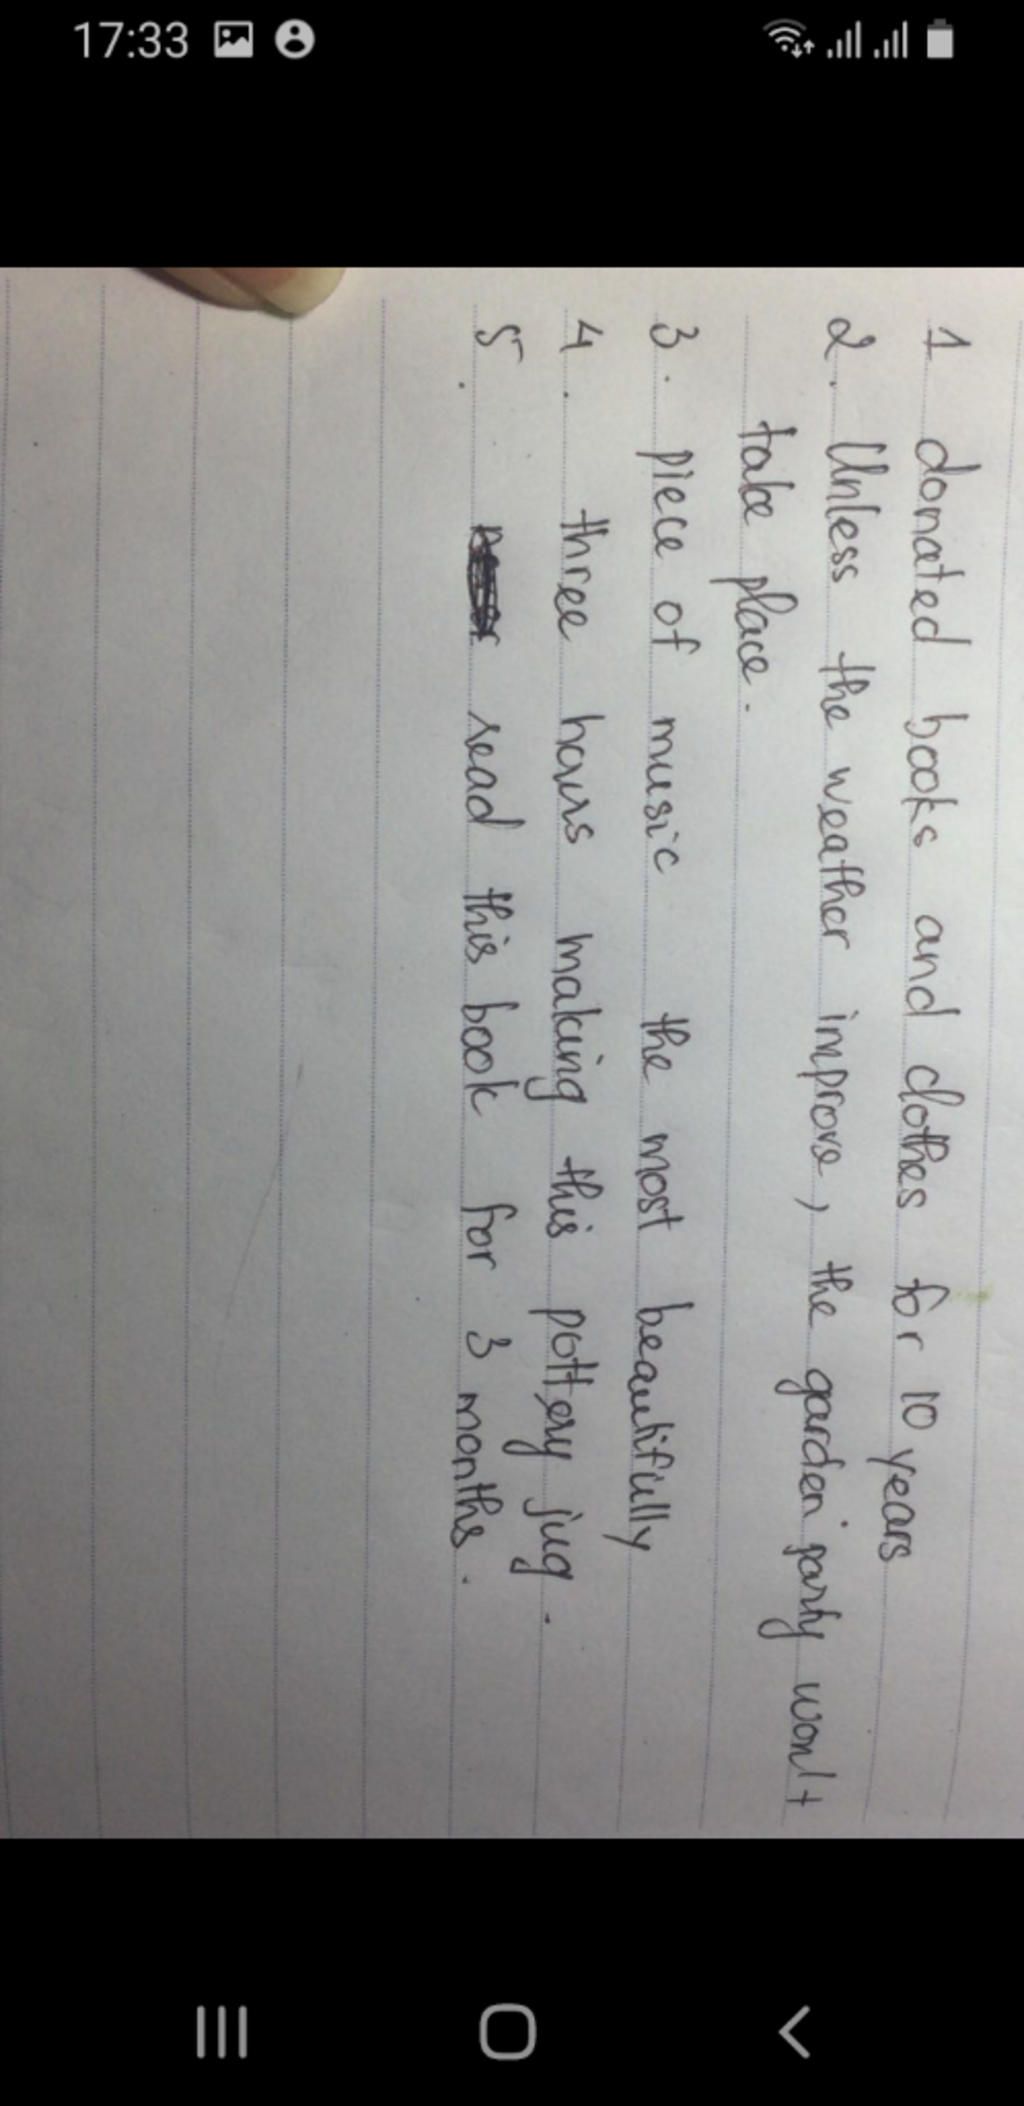 17:33
1 donated books and clothes for 10 years
2. Unless the weather improve, the garden party won't
take place.
3. piece of music the most beautifully
4. three hours making this pottery jug.
5. read this book for 3 months.